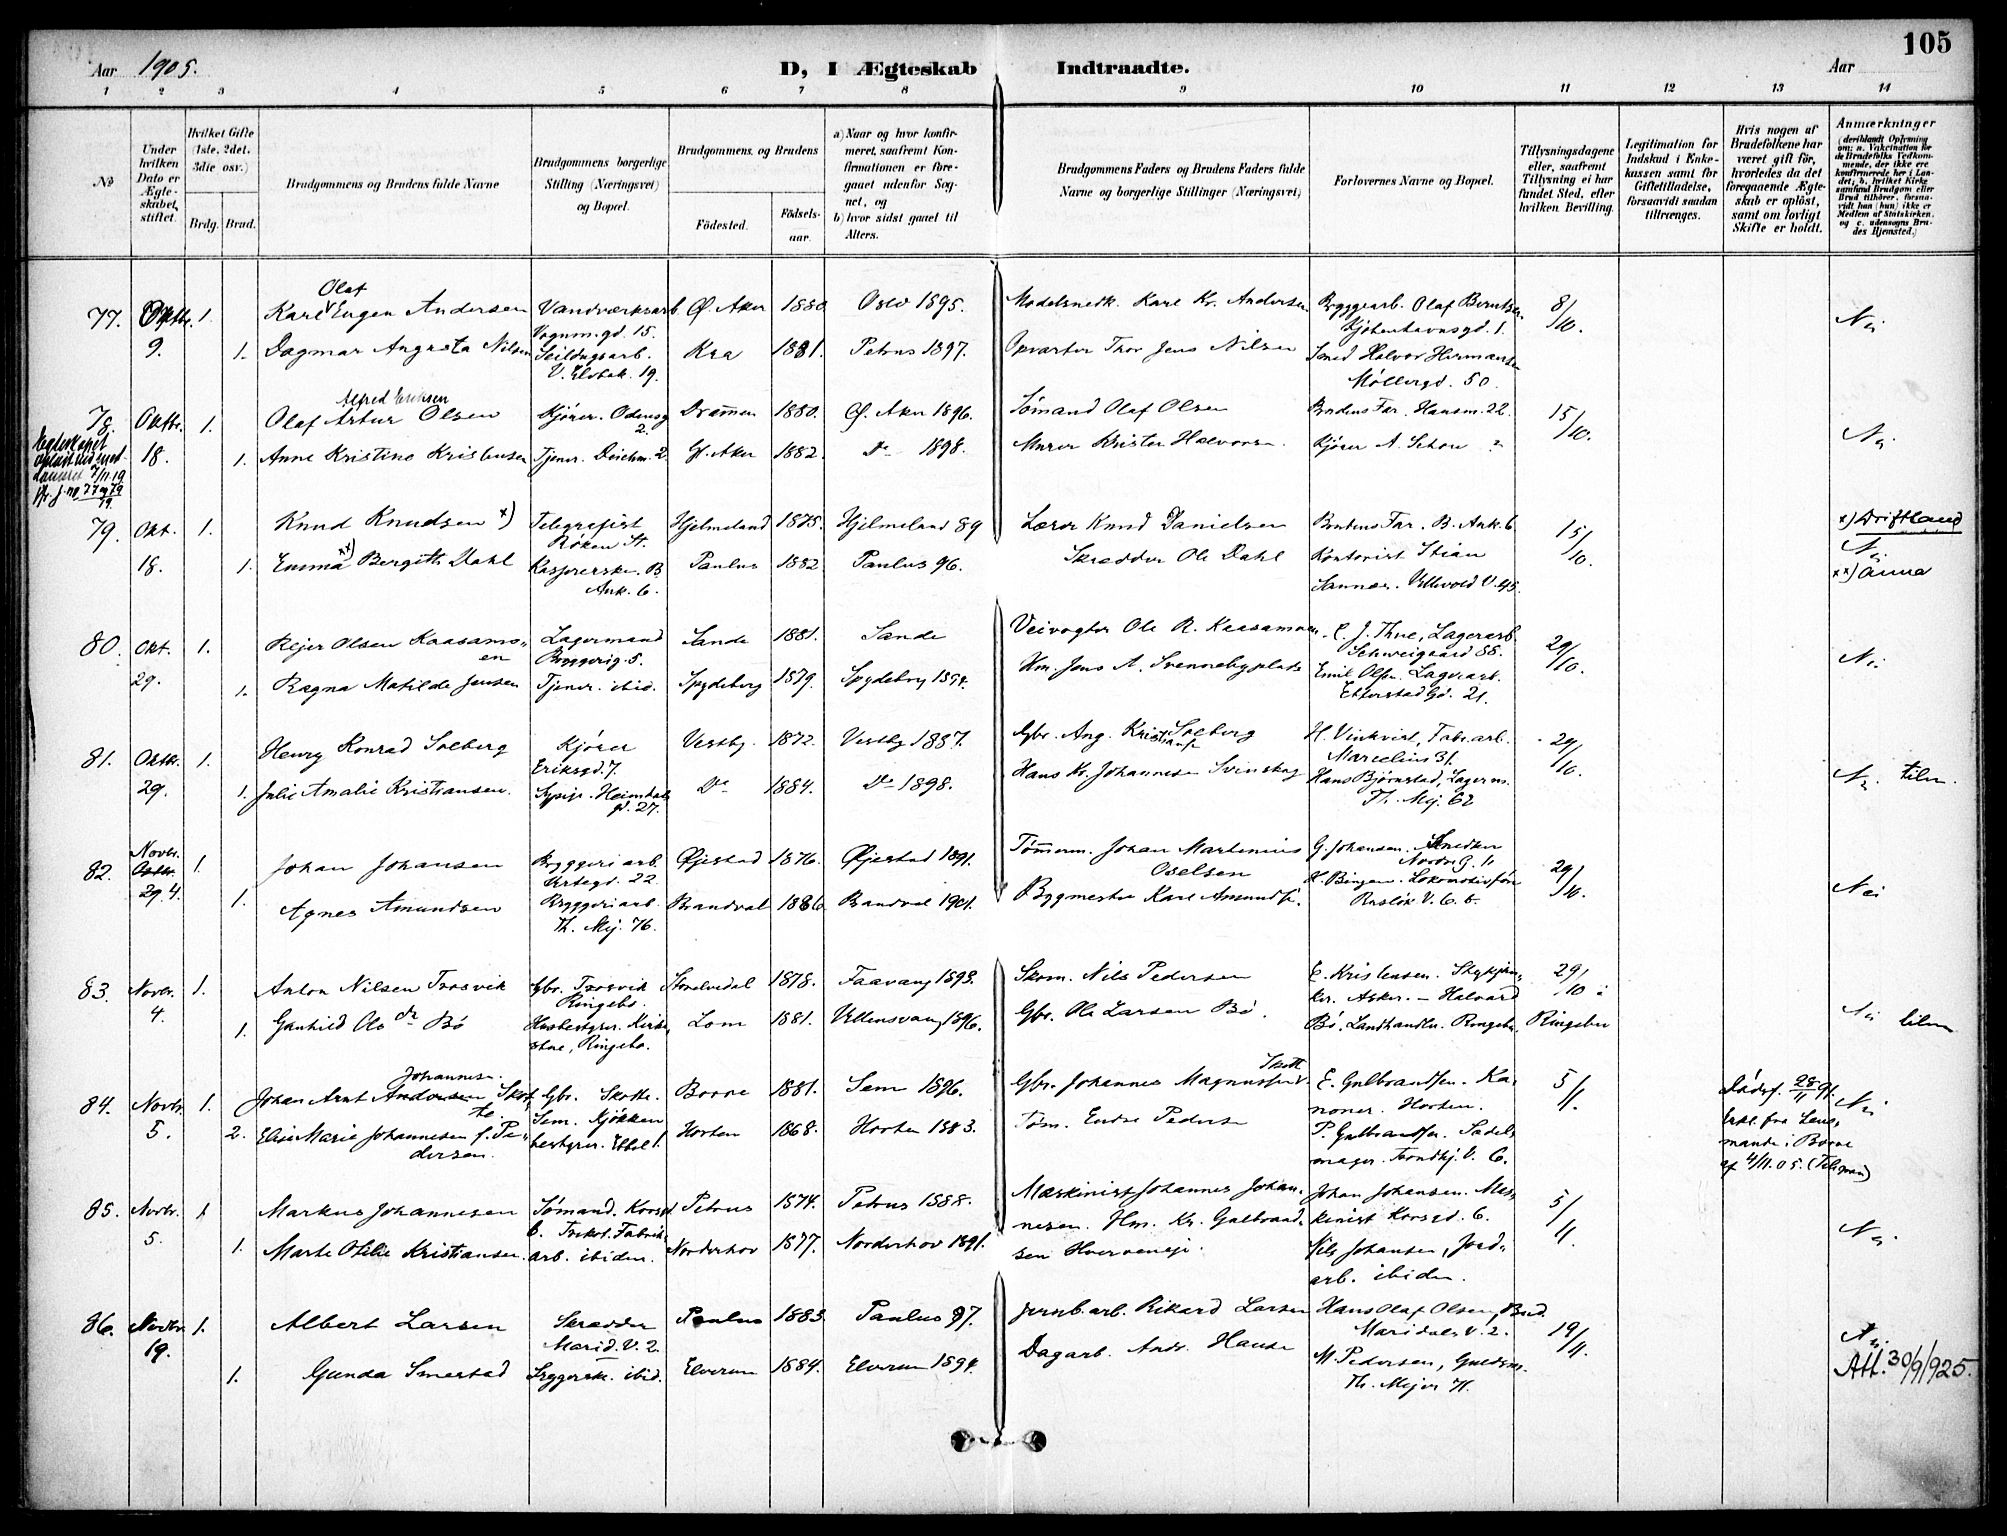 105
Aar 1905.
D, I Ægteskab Indtraadte.
Aar
1 2 3 4 5 6 7 8 9 10 11 12 13 14
No
Under hvilken Dato er Ægteskabet stiftet.
Hvilket Gifte (1ste, 2det, 3die osv.)
Brdg. Brud.
Brudgommens og Brudens fulde Navne
Brudgommens borgerlige Stilling (Næringsvei) og Bopæl.
Brudgommens og Brudens
Födested.
Födselsaar.
a) Naar og hvor konfirmeret, saafremt Konfirmationen er foregaaet udenfor Sognet, og
b) hvor sidst gaaet til Alters.
Brudgommens Faders og Brudens Faders fulde Navne og borgerlige Stillinger (Næringsvei)
Forlovernes Navne og Bopæl.
Tillysningsdagene eller, saafremt Tillysning ei har fundet Sted, efter hvilken Bevilling.
Legitimation for Indskud i Enkekassen samt for Giftetilladelse, forsaavidt saadan tiltrænges.
Hvis nogen af Brudefolkene har været gift för, hvorledes da det foregaaende Ægteskab er oplöst, samt om lovligt Skifte er holdt.
Anmærkninger
77. Oktbr. 1. Karl Olaf Eugen Andersen Vandværksarb. Ø. Aker 1880 Oslo 1895. Modelsnedk. Karl Kr. Andersen Bryggearb. Olaf Berntsen 8/10. Nei
Vognm.gd. 15. Kjøbenhavnsgd. 1.
9. 1. Dagmar Augusta Nilsen Seildugsarb. Kra 1881. Petrus 1897. Opvarter Thor Jens Nilsen Smed Halvor Hermansen
V. Elvbak. 19. Møllergd. 50.
78. Oktbr. 1. Olaf Artur Alfred Eriksen Olsen Kjører. Odensg 2. Drammen 1880. Ø. Aker 1896. Sømand Olaf Olsen Brudens Far. Hausm. 22. 15/10. Nei
18. 1. Anne Kristine Kristensen Tjener. Deichm. 2. Ø. Aker 1882. Do 1898. Murer Krister Halvorsen Kjører A. Schou
79. Okt. 1. Knud Knudsen x) Telegrafist Hjelmeland 1875. Hjelmeland 89 Lærer Knud Danielsen Brudens Far. B. Ank. 6 15/10. x) Driftland
Røken St. Nei
18. 1. Emma xx) Bergith Dahl Kasserske. B. Paulus 1882 Paulus 96. Skrædder Ole Dahl Kontorist Stian xx) Anna
Ank. 6. Sannæs. Ullevold V. 45.
80. Okt. 1. Rejer Olsen Kaasamoen Lagermand Sande 1881. Sande Veivogter Ole R. Kaasamoen C. J. Thue, Lagerarb. 29/10. Nei
Bryggerig. 5. Schweigaard 88.
29. 1. Ragna Matilde Jensen Tjener. ibid. Spydeberg 1879. Spydeberg 1894. Hm. Jens A. Svennebyplads Emil Olsen. Lagerarb.
Etterstad Gd. 21.
81. Oktbr. 1. Henry Konrad Solberg Kjører Vestby 1872. Vestby 1887. Gbr. Aug. Kristians Solberg H. Vinkvist, Fabr.arb. 29/10.
Eriksgd. 7. Marcelius 31.
29. 1. Julie Amalie Kristiansen. Sypige. Heimdals gd. 27. Do 1884. Do 1898. Hans Kr. Johannesen Svinskog Hans Bjørnstad, Lagerm. Nei. tilm.
Th. Mej. 62
82. Novbr. 1. Johan Johansen Bryggeri arb. Øjestad 1876. Øjestad 1891. Tømmerm. Johan Martinius Oselsen G. Johansen. Snedker 29/10. Nei
Urtegd. 22. Nordre G. 11
29. 4. 1. Agnes Amundsen Bryggeriarb. Brandval 1886 Brandval 1901. Bygmester Karl Amunds. K. Bingen. Lokomotivfør.
Th. Mej. 76.
83. Novbr. 1. Anton Nilsen Trosvik Gbr. Trosvik Storelvedal 1878. Faavang 1893. Skom. Nils Pedersen E. Kristensen. 29/10 i Ringebu
4. Ringebo. Asker. — Halvard
1. Gunhild Ols dr Bø Husbestyrer. Kirke Lom 1881. Ullensvang 1896. Gbr. Ole Larsen Bø. Bø. Landhandler. Ringebu. Nei tilm
stue, Ringebo.
84. Novbr. 1. Johan Arnt Andersen Johannesen Skotte. Gbr. Skotte. Borre 1881. Sem 1896. Gbr. Johannes Magnussen Skotte E. Gulbrandsen. Kanoner. Horten. 5/11. Dødsf. 28/11 91. Nei
5. 2. Elise Marie Johannesen f. Pedersen. Sem. Kjøkkenbestyrer. Horten 1868. Horten 1883. Tøm. Endre Pedersen P. Gulbrandsen. Sadelmager. Trondhj. V. 6. Erkl. fra Lensmanden i Borre af 4/11.05.
85. Novbr. 1 Markus Johannesen Sømand. Korsgd Petrus 1874. Petrus 1888. Maskinist Johannes Johannesen. Johan Johansen. Maskinist Korsgd. 6. 5/11. Nei.
5. 1. Marte Otilie Kristiansen. 6. Trikot. Fabrikarb. ibiden. Norderhov 1877. Norderhov 1891. Hm. Kr. Gulbrandsen Hverveneje. Nils Johansen, Jordarb. ibiden.
86. Novbr. 1. Albert Larsen Skrædder Paulus 1883 Paulus 97. Jernb.arb. Rikard Larsen Hans Olaf Olsen, Bud. 19/11. Nei.
19. Marid. V. 2. Maridals V. 2.
1. Gunda Smestad Bryggersk. ibid. Elverum 1884. Elverum 1894. Dagarb. Andr. Hansen M. Pedersen, Guldsm. Att. 30/9/1925.
Th. Mejer 71.